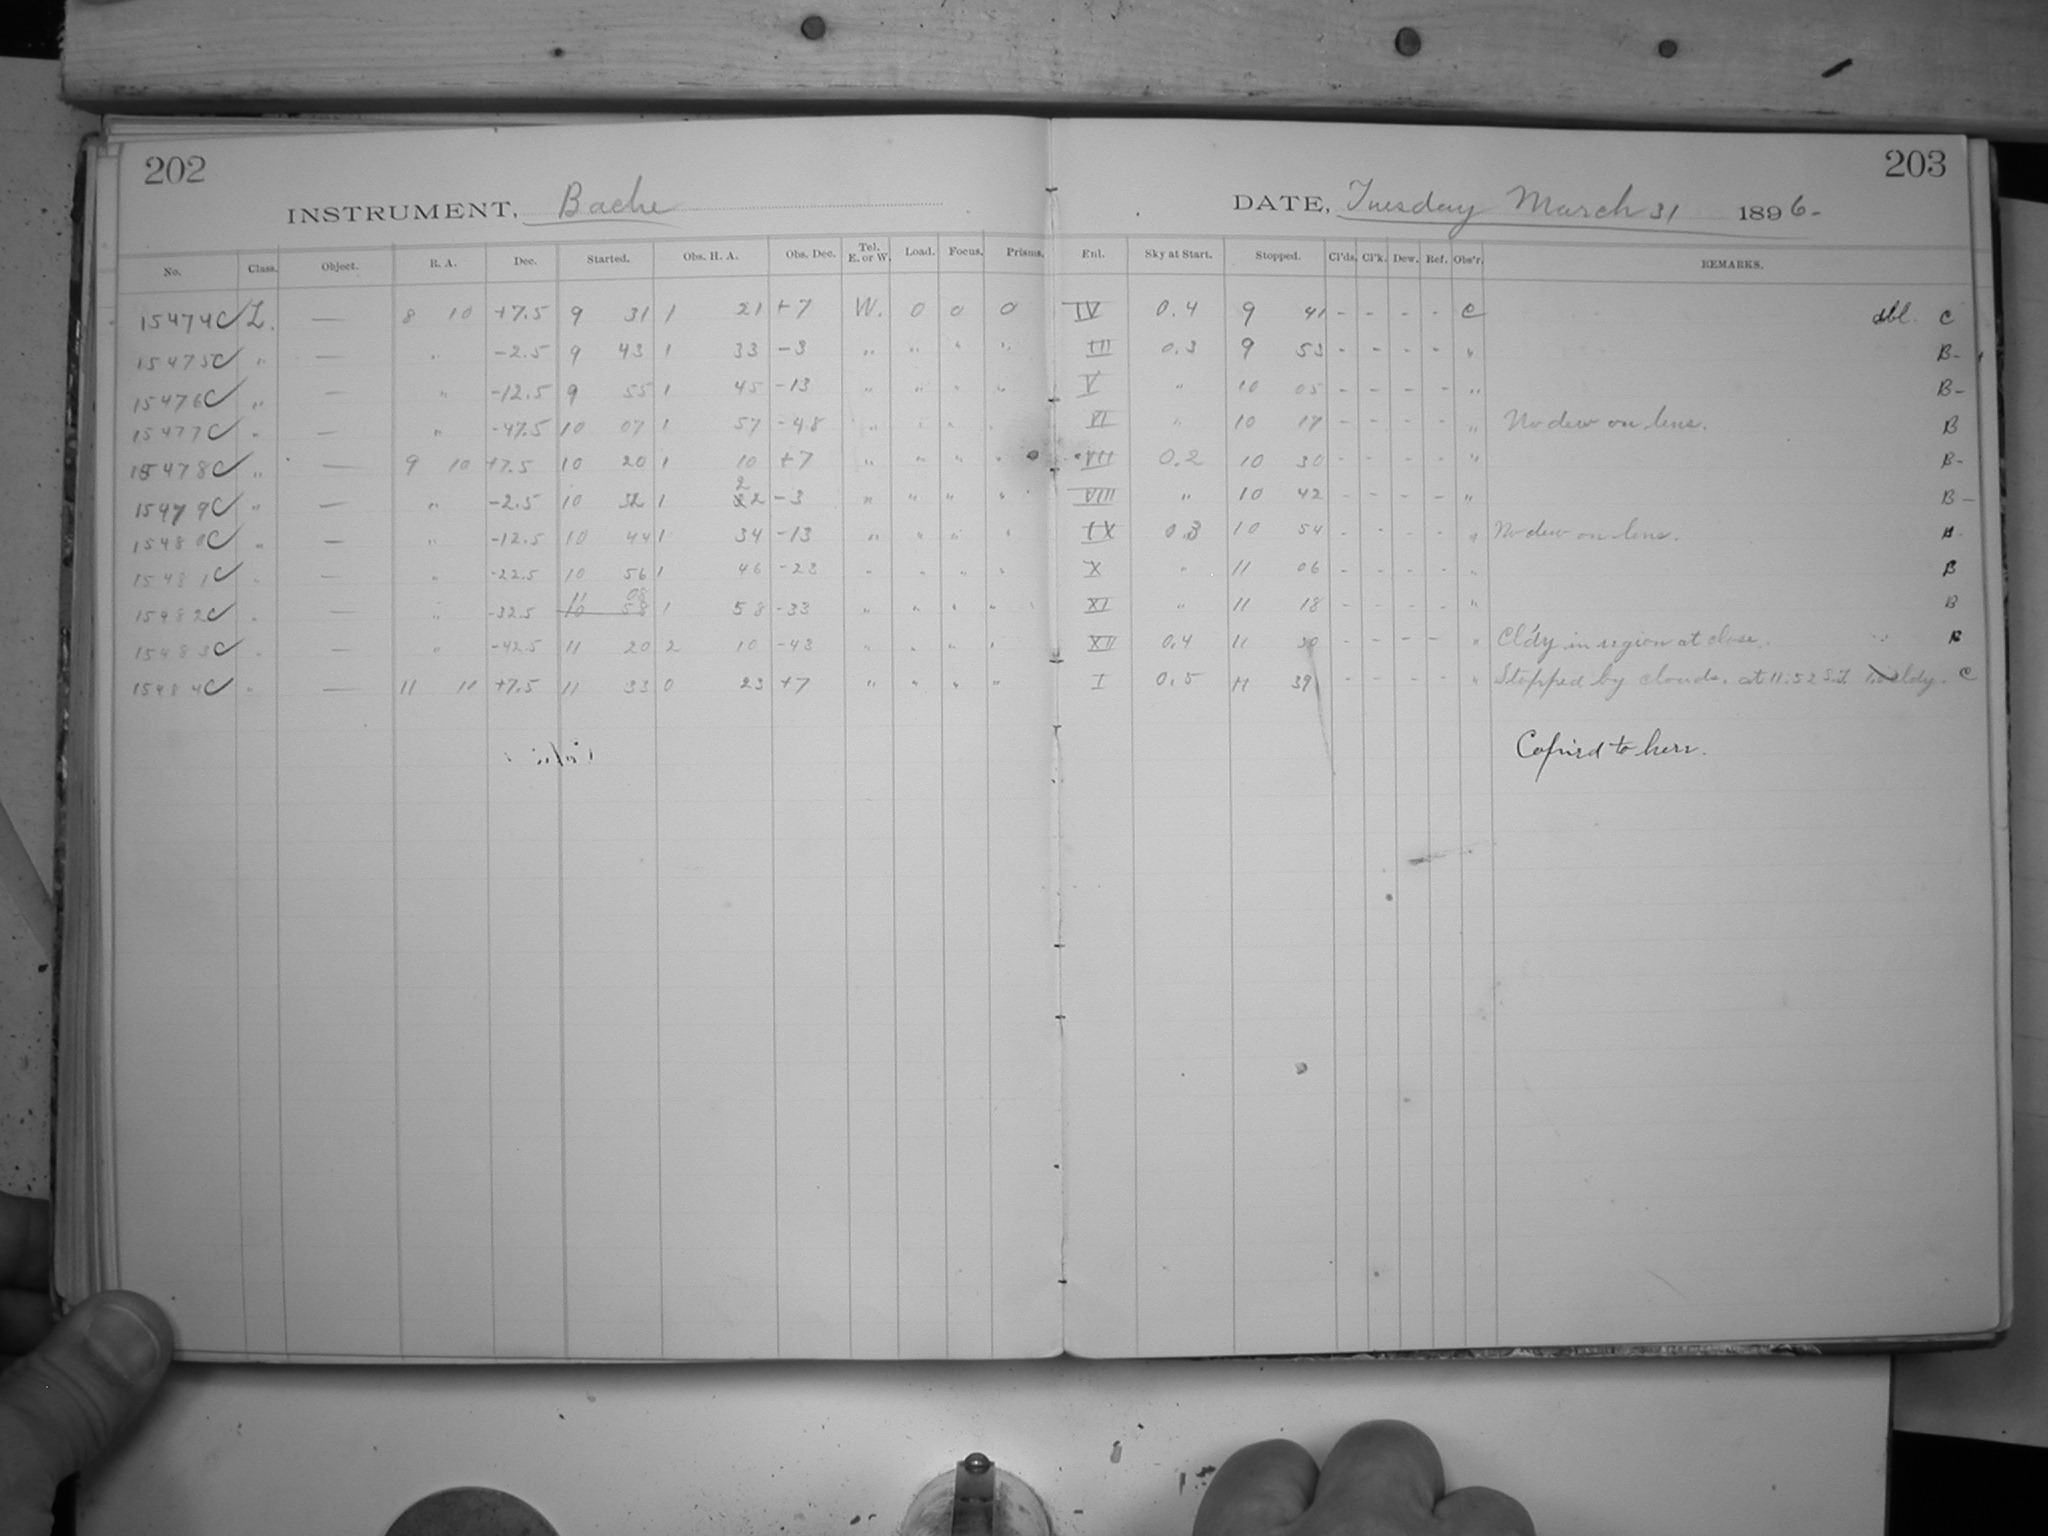 202
203
INSTRUMENT, Bache
DATE, Tuesday March 31 1896-
No. Class. Object. R. A. Dec. Started. Obs. H. A. Obs. Dec. Tel. E. or W. Load. Focus. Prisms. Enl. Sky at Start. Stopped. Cl'ds. Cl'k. Dew. Ref. Obs'r. REMARKS.
15474C L. — 8 10 +7.5 9 31 1 21 +7 W. 0 0 0 IV 0.4 9 41 - - - - C dbl. C
15475C " — " -2.5 9 43 1 33 -3 " " " " III 0.3 9 53 - - - - " B-
15476C " — " -12.5 9 55 1 45 -13 " " " " V " 10 05 - - - - " B-
15477C " — " -47.5 10 07 1 57 -48 " " " " VI " 10 17 - - - - " No dew on lens. B
15478C " — 9 10 +7.5 10 20 1 10 +7 " " " " VII 0.2 10 30 - - - - " B-
15479C " — " -2.5 10 32 1 22 -3 " " " " VIII " 10 42 - - - - " B-
15480C " — " -12.5 10 44 1 34 -13 " " " " IX 0.3 10 54 - - - - " No dew on lens.
15481C " — " -22.5 10 56 1 46 -23 " " " " X " 11 06 - - - - " B
15482C " — " -32.5 11 08 1 58 -33 " " " " XI " 11 18 - - - - " B
15483C " — " -42.5 11 20 2 10 -43 " " " " XII 0.4 11 30 - - - - " Cl'dy in region at close.
15484C " — 11 10 +7.5 11 33 0 23 +7 " " " " I 0.5 11 39 - - - - " Stopped by clouds. at 11:52 S.T. cldy. C
Copied to here.